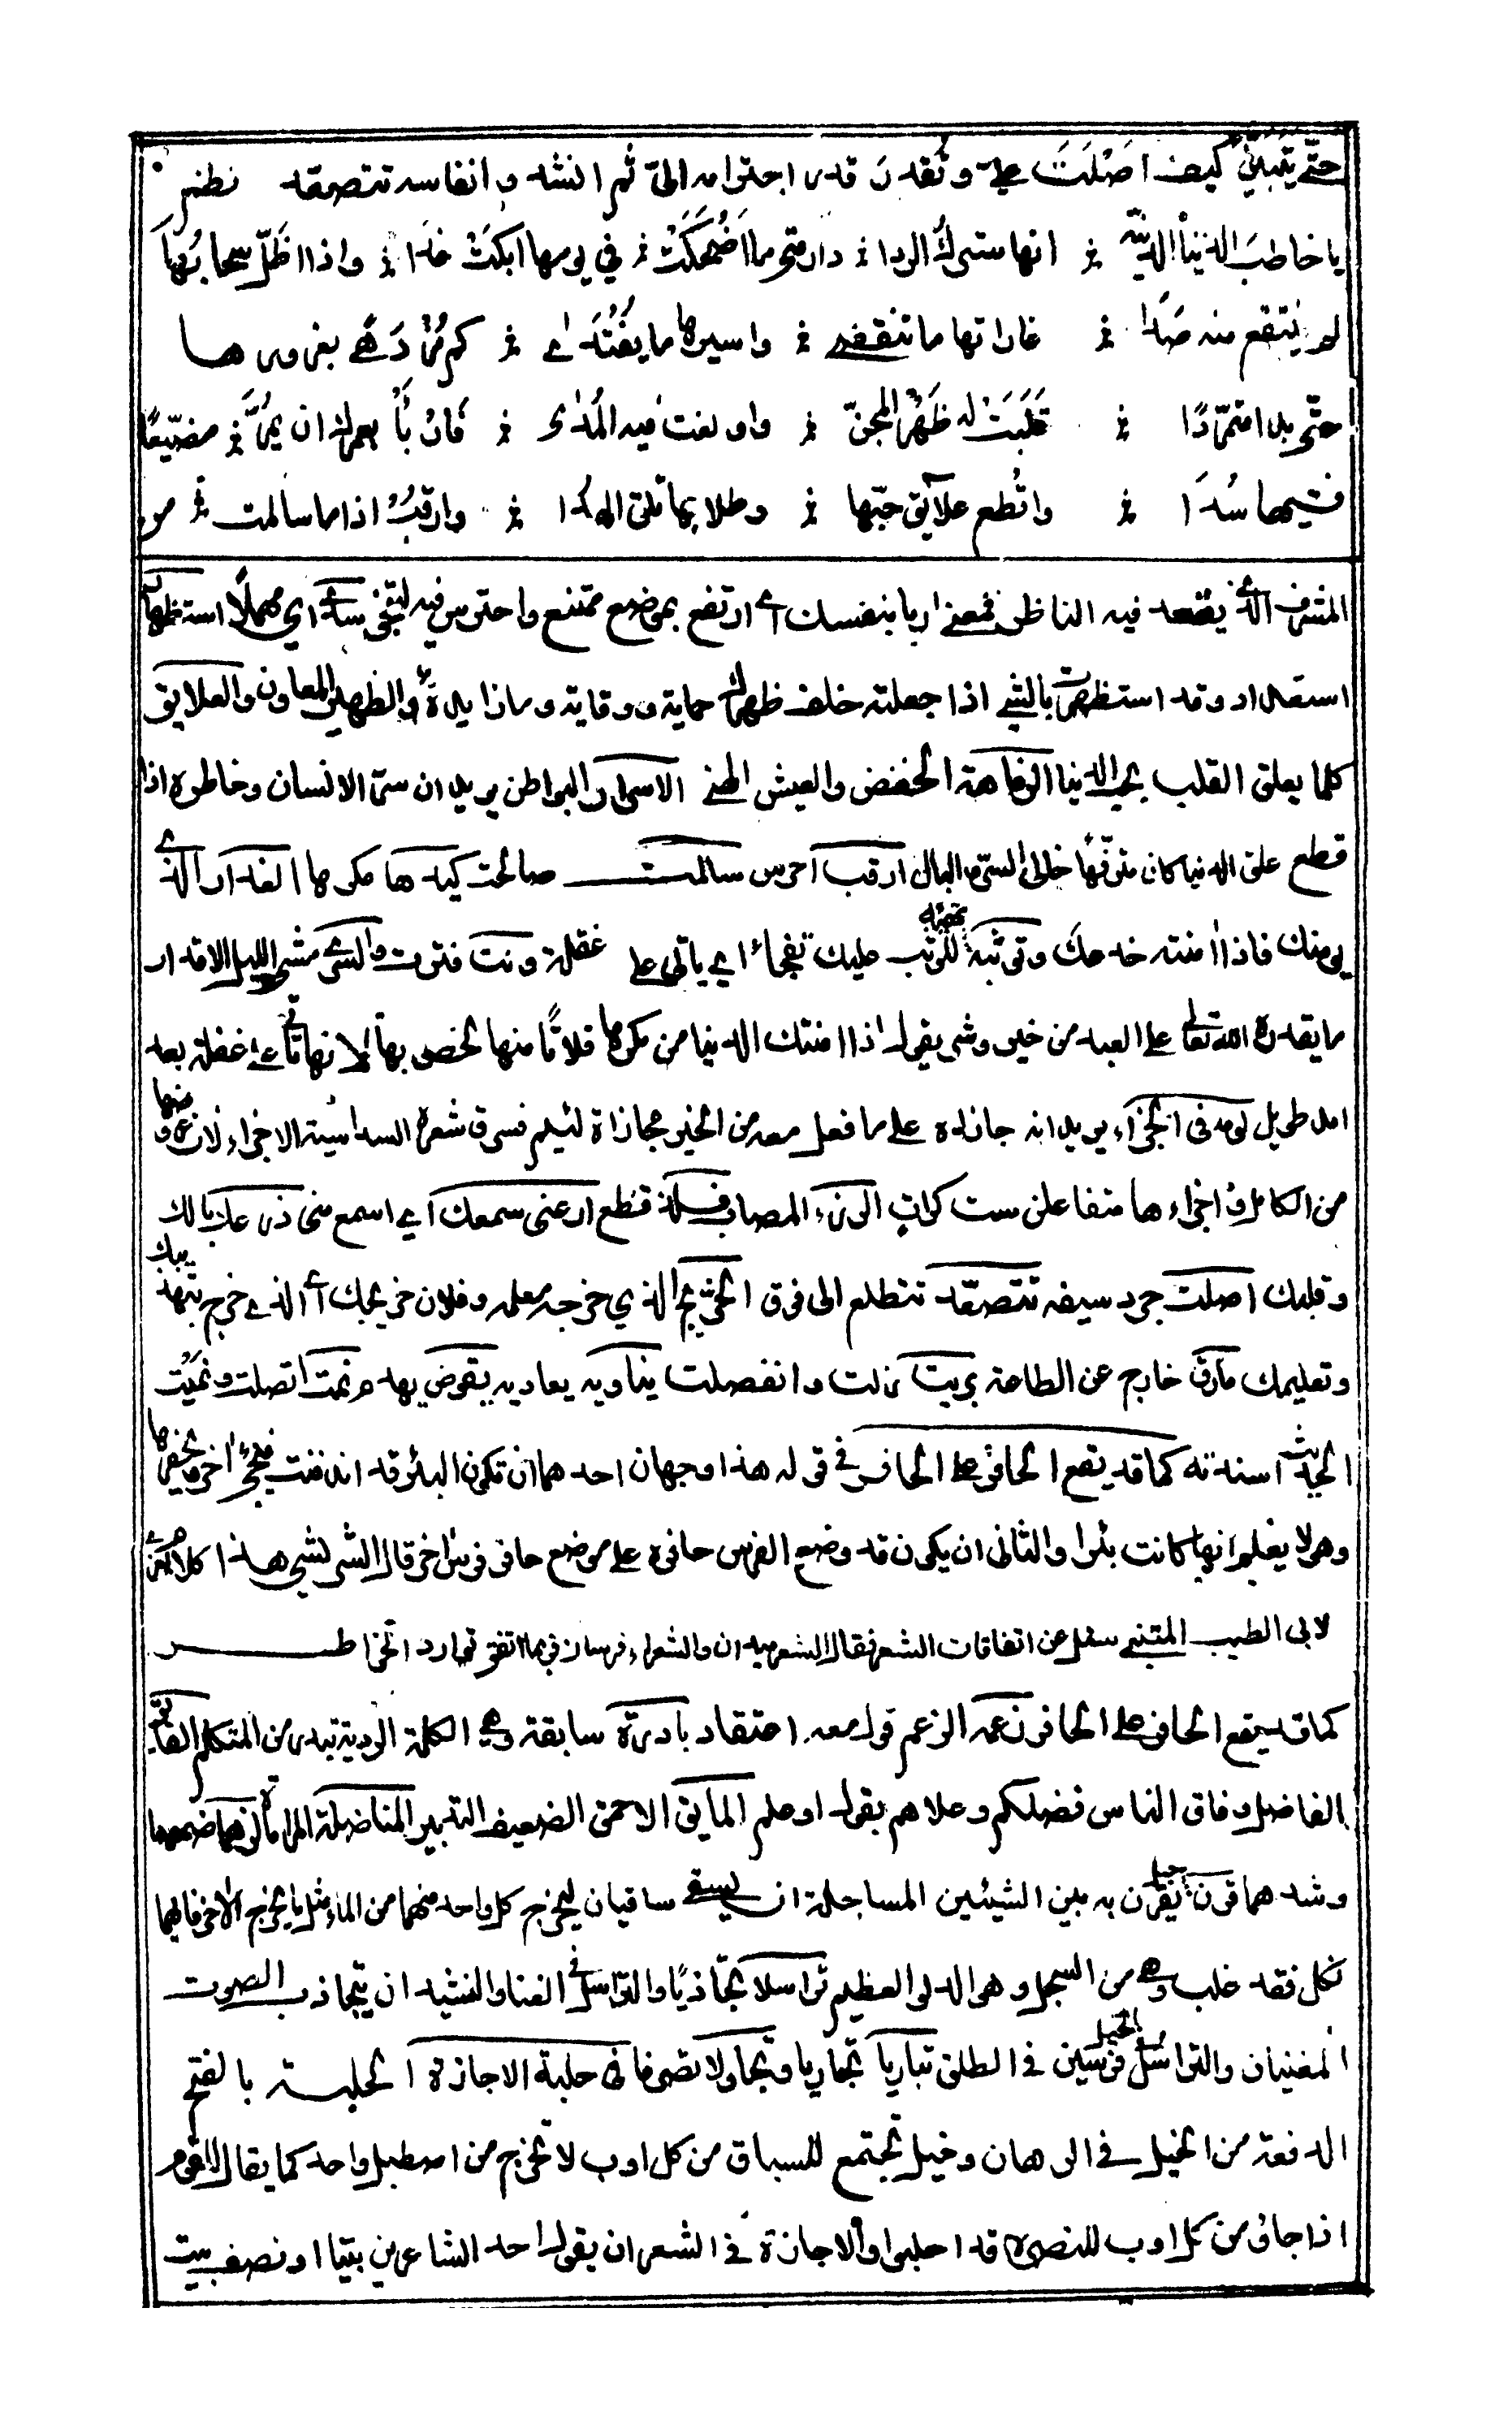 حتّى يتبيّن كيف اصْلَتَ عليّ وتُقدرَ قدر اجترامه اليّ ثم انشد وانفاسه تتصعّد نظم
يا خاطبَ الدنيا الدنيّة انها شركُ الردا دار متى ما اَضْحكَتْ في يومها ابكَتْ غدا واذا اظَلّ سحابُها
لم ينتقع منه صَدا غاراتها ما تنقضي واسيرها ما يُفْتَدى كم مُزْدَهًى بغرورها
حتّى بدا متمرّدًا قَلَبَتْ له ظَهْرَ المجنّ واولغت فيه المُدى فَارْبأْ بعمرك ان يمُرَّ مضيّعًا
فيها سُدًا واقطع علايق حبّها وطلابها تلق الهدا وارقُبْ اذا ما سالمت من
المشرف الذي يقعد فيه الناظر فمعنى اربا بنفسك اي ارتفع بموضع ممتنع واحترس فيه لتبقى سدى اي مهملًا استظهارك
استعداد وقد استظهرت بالشيء اذا جعلته خلف ظهرك حماية ووقاية والظهير المعاون والعلايق
كلما يعلق القلب بحب الدنيا الرفاهة الخفض والعيش الهني الاسرار البواطن يريد ان سرّ الانسان وخاطره اذا
قطع علق الدنيا كان مترفّهًا خالى السرّ والبال ارقب احرس سالمت صالحت كيدها مكرها الغدار الذي
يومنك فاذا امنته خدعك وتوثبه للوثب عليك تفجأ اي ياتي على غفلة ونت فترت والسرى مشي الليل الاقدار
ما يقدره الله تعالى على العبد من خير وشر يقول اذا امنتك الدنيا من مكرها فلا تأمنها لخص بها لانها تأتي على غفلة بعد
امد طويل لومه في الجزاء يريد انه جازاه على ما فعل معه من الخير مجازاة لئيم فسرق شعره السداسية الاجزاء لان عروضها
من الكامل واجزاءها متفاعلن ست كرات الرزء المصاب فلذ قطع ارعني سمعك اي اسمع مني ذرعك بالك
وقلبك اصلت جرد سيفه تتصعّد تتطلع الى فوق الخرّيج الذي خرجه معلمه وفلان خريجك اي الذي خرج بتهذيبك
وتعليمك مارق خارج عن الطاعة بريت زلت وانفصلت يناويه يعاديه يقوض يهدم نمت اتصلت ونميت
الحديث اسندته كما قد يقع الحافر على الحافر في قوله هذا وجهان احدهما ان تكون البئر قد اندفنت فيجيء اخر فيحفرها
وهو لا يعلم انها كانت بئرا والثاني ان يكون قد وضع الفرس حافره على موضع حافر فرس اخر قال الشريشي هذا كلام يعزى
لابي الطيب المتنبي سئل عن اتفاقات الشعر فقال الشعر ميدان والشعراء فرسان فربما اتفق توارد الخواطر
كما قد يقع الحافر على الحافر زعمه الزعم قول معه اعتقاد بادرة سابقة وهي الكلمة الردية تبدر من المتكلم الفائق
الفاضل وفاق الناس فضلهم وعلاهم بقول او علم المايق الاحمق الضعيف التدبير المناضلة المراماة لزهما ضمهما
وشدهما قرن حبل يقرن به بين الشيئين المساجلة ان يستقي ساقيان ليخرج كل واحد منهما من الماء مثل ما يخرج الاخر فايهما
نكل فقد غلب وهي من السجل وهو الدلو العظيم تراسلا تجاذبا والتراسل في الغنا والنشيد ان يتجاذب الصوت
المغنيان والتراسل في الخيل سبق فرسين في الطلق تباريا تجاريا وتجاولا تصرفا في حلبة الاجازة الحلبة بالفتح
الدفعة من الخيل في الرهان وخيل تجتمع للسباق من كل اوب لا تخرج من اصطبل واحد كما يقال للقوم
اذا جاؤ من كل اوب للنصرة قد احلبوا والاجازة في الشعر ان يقول احد الشاعرين بيتا او نصف بيت